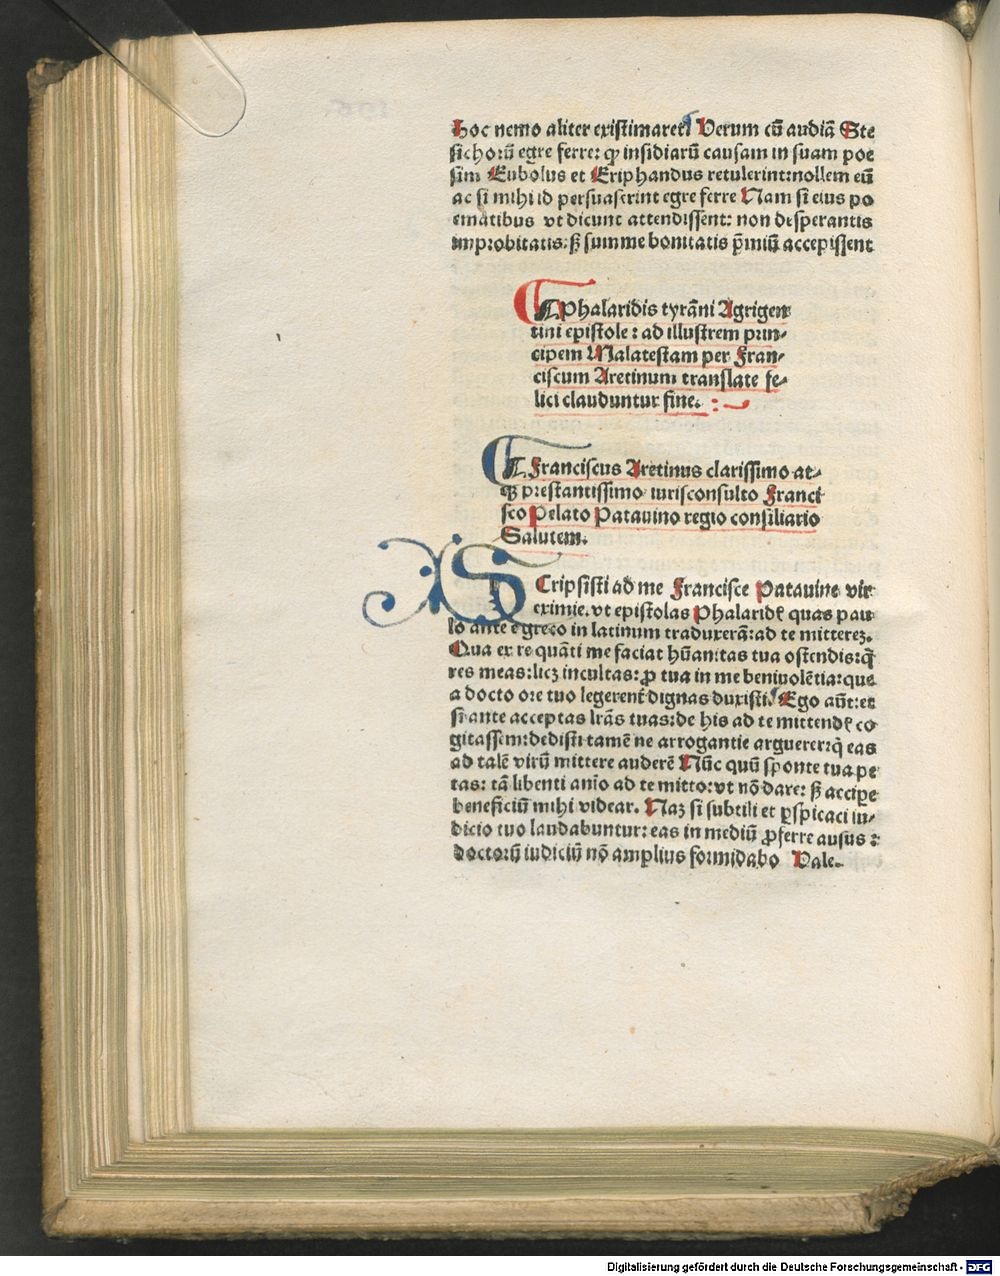 hoc nemo aliter existimaret. Verum cū audiā Ste
sichorū egre ferre: qp insidiarū causam in suam poe
sim Eubolus et Eriphandus retulerint: nollem eū
ac si mihi id persuaserint egre ferre Nam si eius po
ematibus vt dicunt attendissent: non desperantis
improbitatis: sʒ summe bonitatis p̄miū accepissent
¶ Phalaridis tyrāni Agrigen
tini epistole: ad illustrem prin-
cipem Malatestam per Fran-
ciscum Aretinum translate fe-
lici clauduntur fine.
¶ Franciscus Aretinus clarissimo at-
qʒ prestantissimo iurisconsulto Franci
sco Pelato Patauino regio consiliario
Salutem.
SCripsisti ad me Francisce Patauine vir
eximie. vt epistolas Phalaridꝭ quas pau
lo ante e greco in latinum traduxerā: ad te mitterez.
Qua ex re quāti me faciat hūanitas tua ostendis: q̄
res meas: licz incultas: ꝓ tua in me beniuolētia: que
a docto ore tuo legerent᷑ dignas duxisti. Ego aūt: et
si ante acceptas lr̄as tuas: de his ad te mittendꝭ co
gitassem: dedisti tamē ne arrogantie arguerer: q̄ eas
ad talē virū mittere auderē Nūc quū sponte tua pe
tas: tā libenti anīo ad te mitto: vt nō dare: sʒ accipe
beneficiū mihi videar. Naz si subtili et ꝑspicaci iu-
dicio tuo laudabuntur: eas in mediū ꝓferre ausus:
doctorū iudiciū nō amplius formidabo Vale.
Digitalisierung gefördert durch die Deutsche Forschungsgemeinschaft - DFG